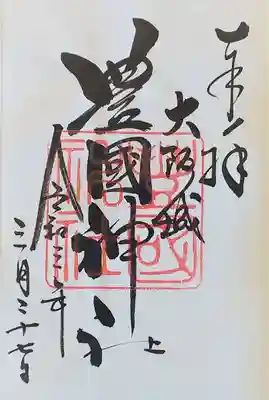 奉拝
大阪城
豊國神社
上
令和三年
三月二十七日